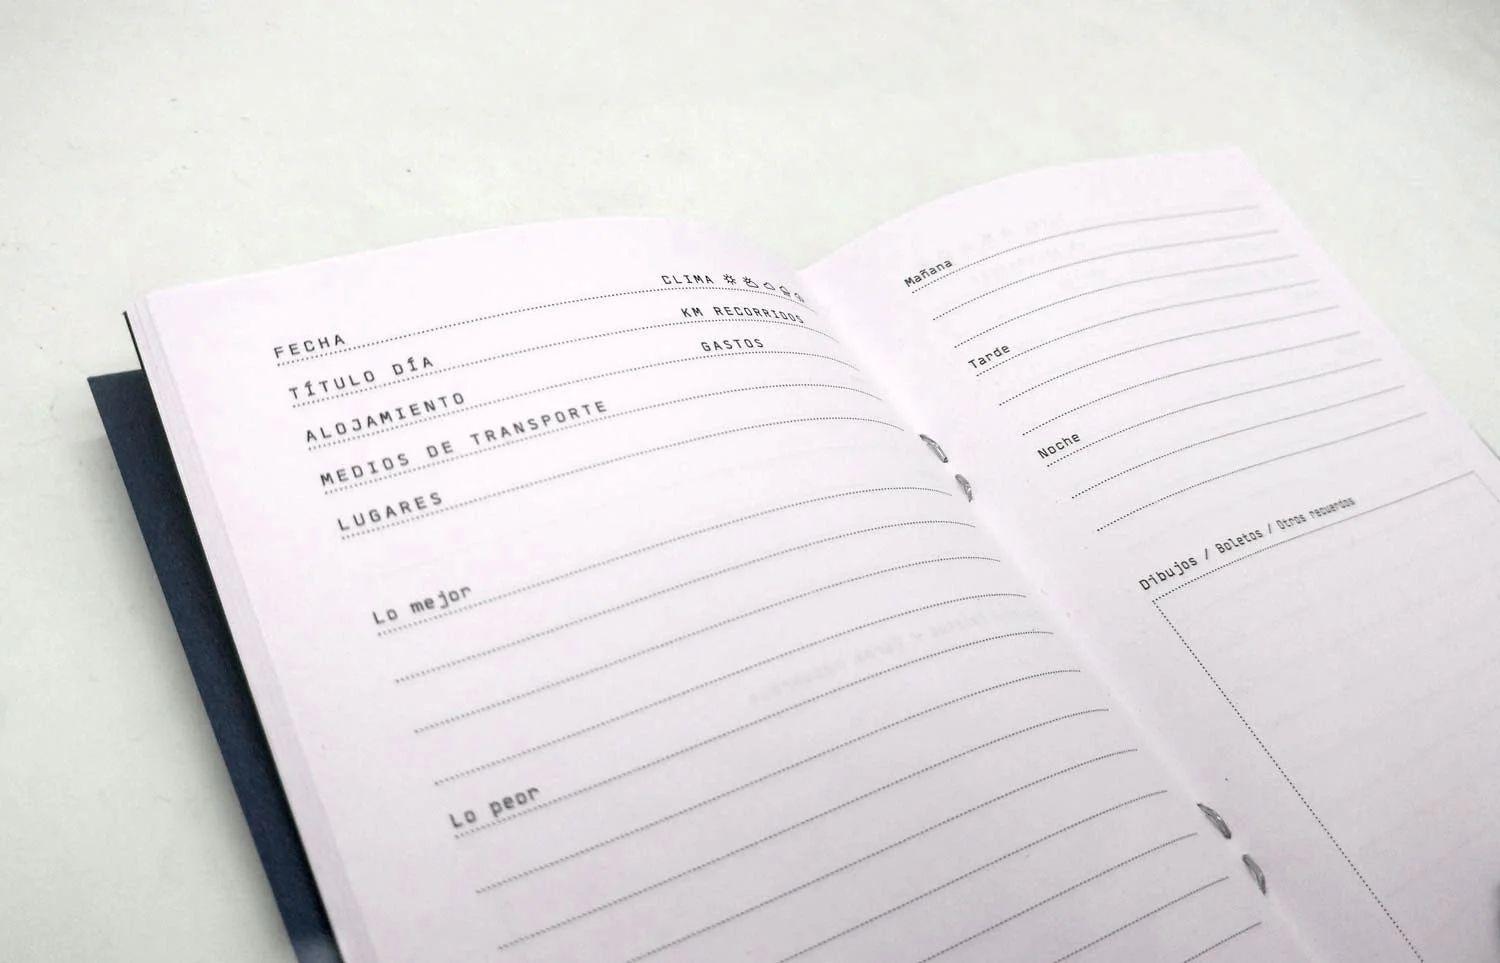 FECHA CLIMA
TÍTULO DÍA KM RECORRIDOS
ALOJAMIENTO GASTOS
MEDIOS DE TRANSPORTE
LUGARES
Lo mejor
Lo peor
Mañana
Tarde
Noche
Dibujos / Boletos / Otros recuerdos